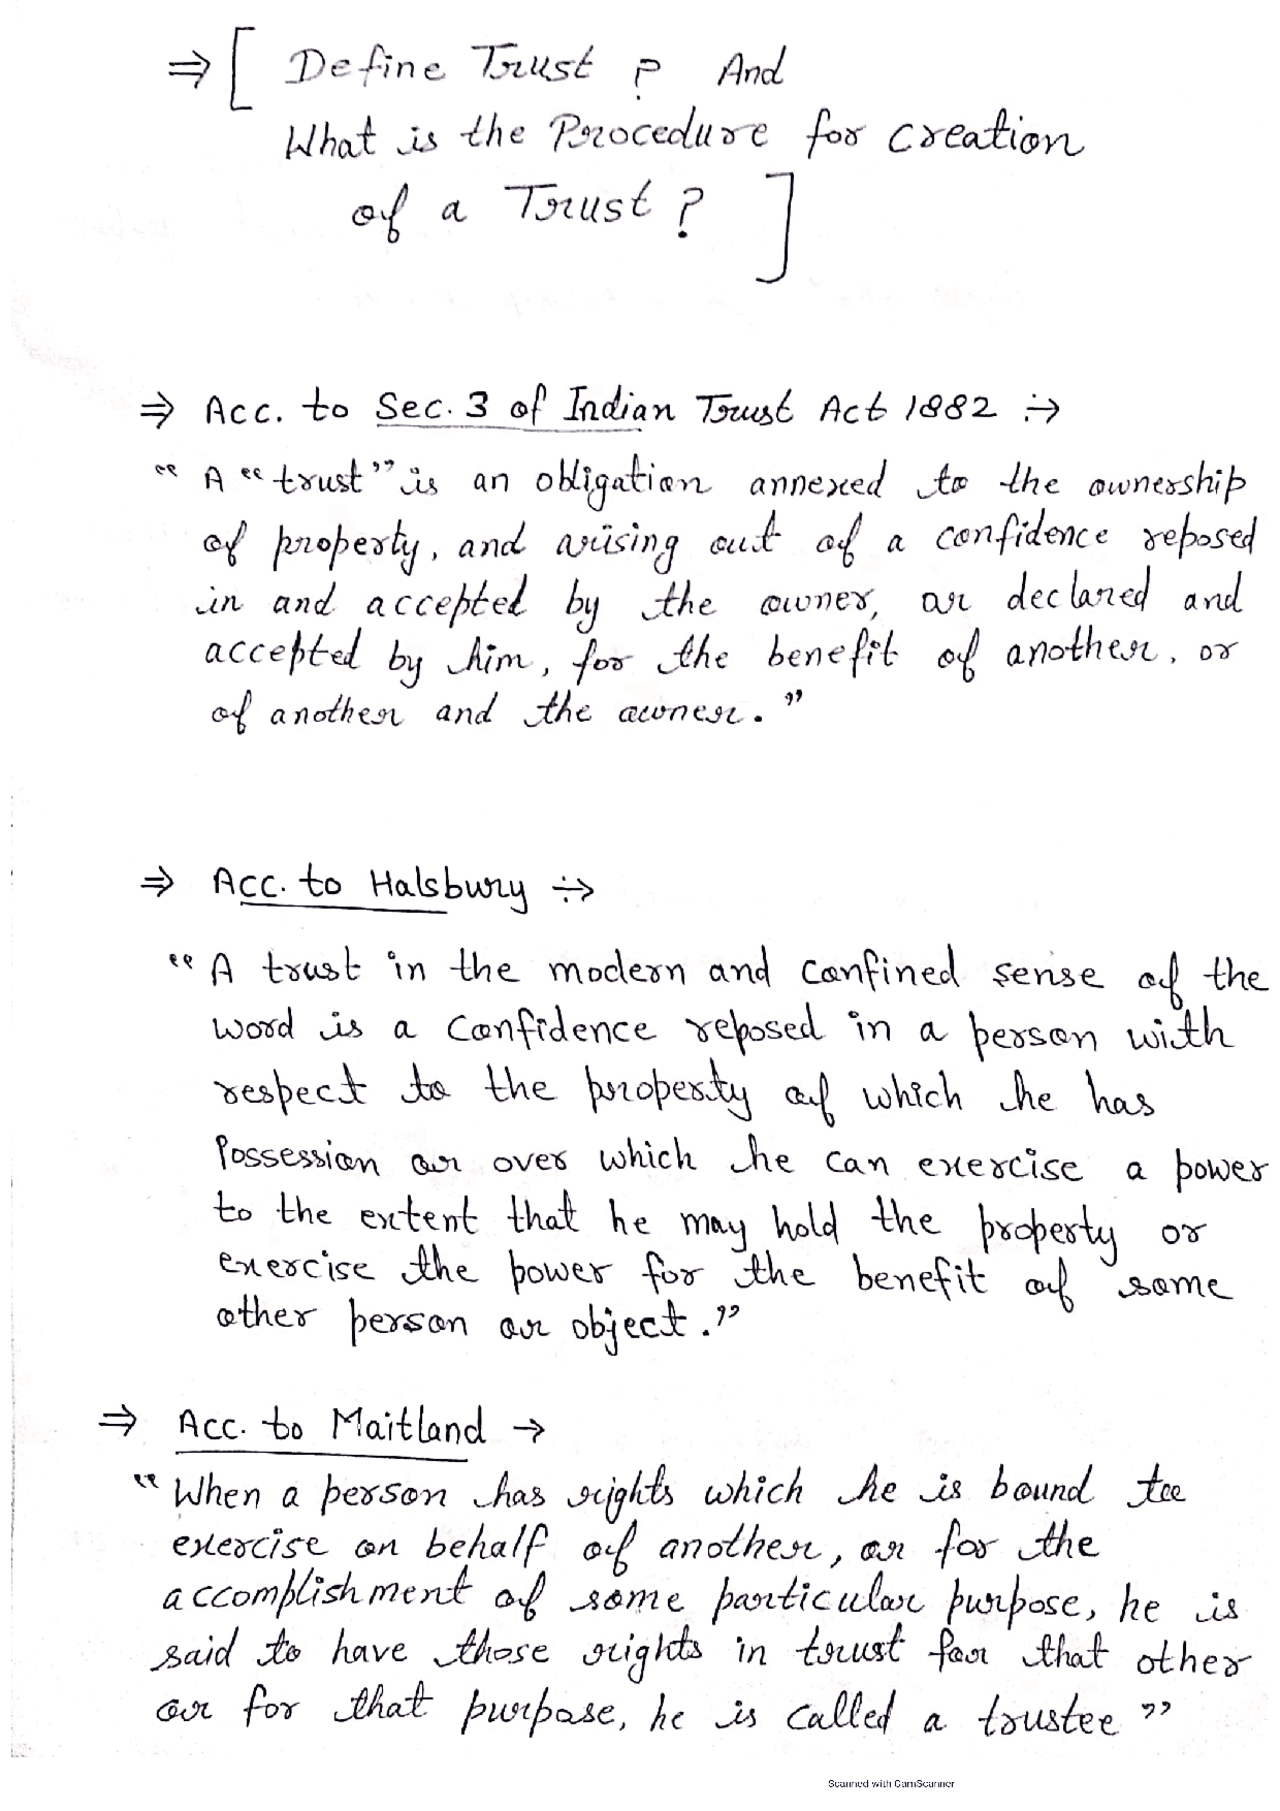 ⇒ [ Define Trust ? And
What is the Procedure for creation
of a Trust ? ]
⇒ Acc. to Sec. 3 of Indian Trust Act 1882 ÷>
“ A “trust” is an obligation annexed to the ownership
of property, and arising out of a confidence reposed
in and accepted by the owner, or declared and
accepted by him, for the benefit of another, or
of another and the owner. ”
⇒ Acc. to Halsbury ÷>
“ A trust in the modern and confined sense of the
word is a confidence reposed in a person with
respect to the property of which he has
Possession or over which he can exercise a power
to the extent that he may hold the property or
exercise the power for the benefit of some
other person or object. ”
⇒ Acc. to Maitland →
“ When a person has rights which he is bound to
exercise on behalf of another, or for the
accomplishment of some particular purpose, he is
said to have those rights in trust for that other
or for that purpose, he is called a trustee ”
Scanned with CamScanner